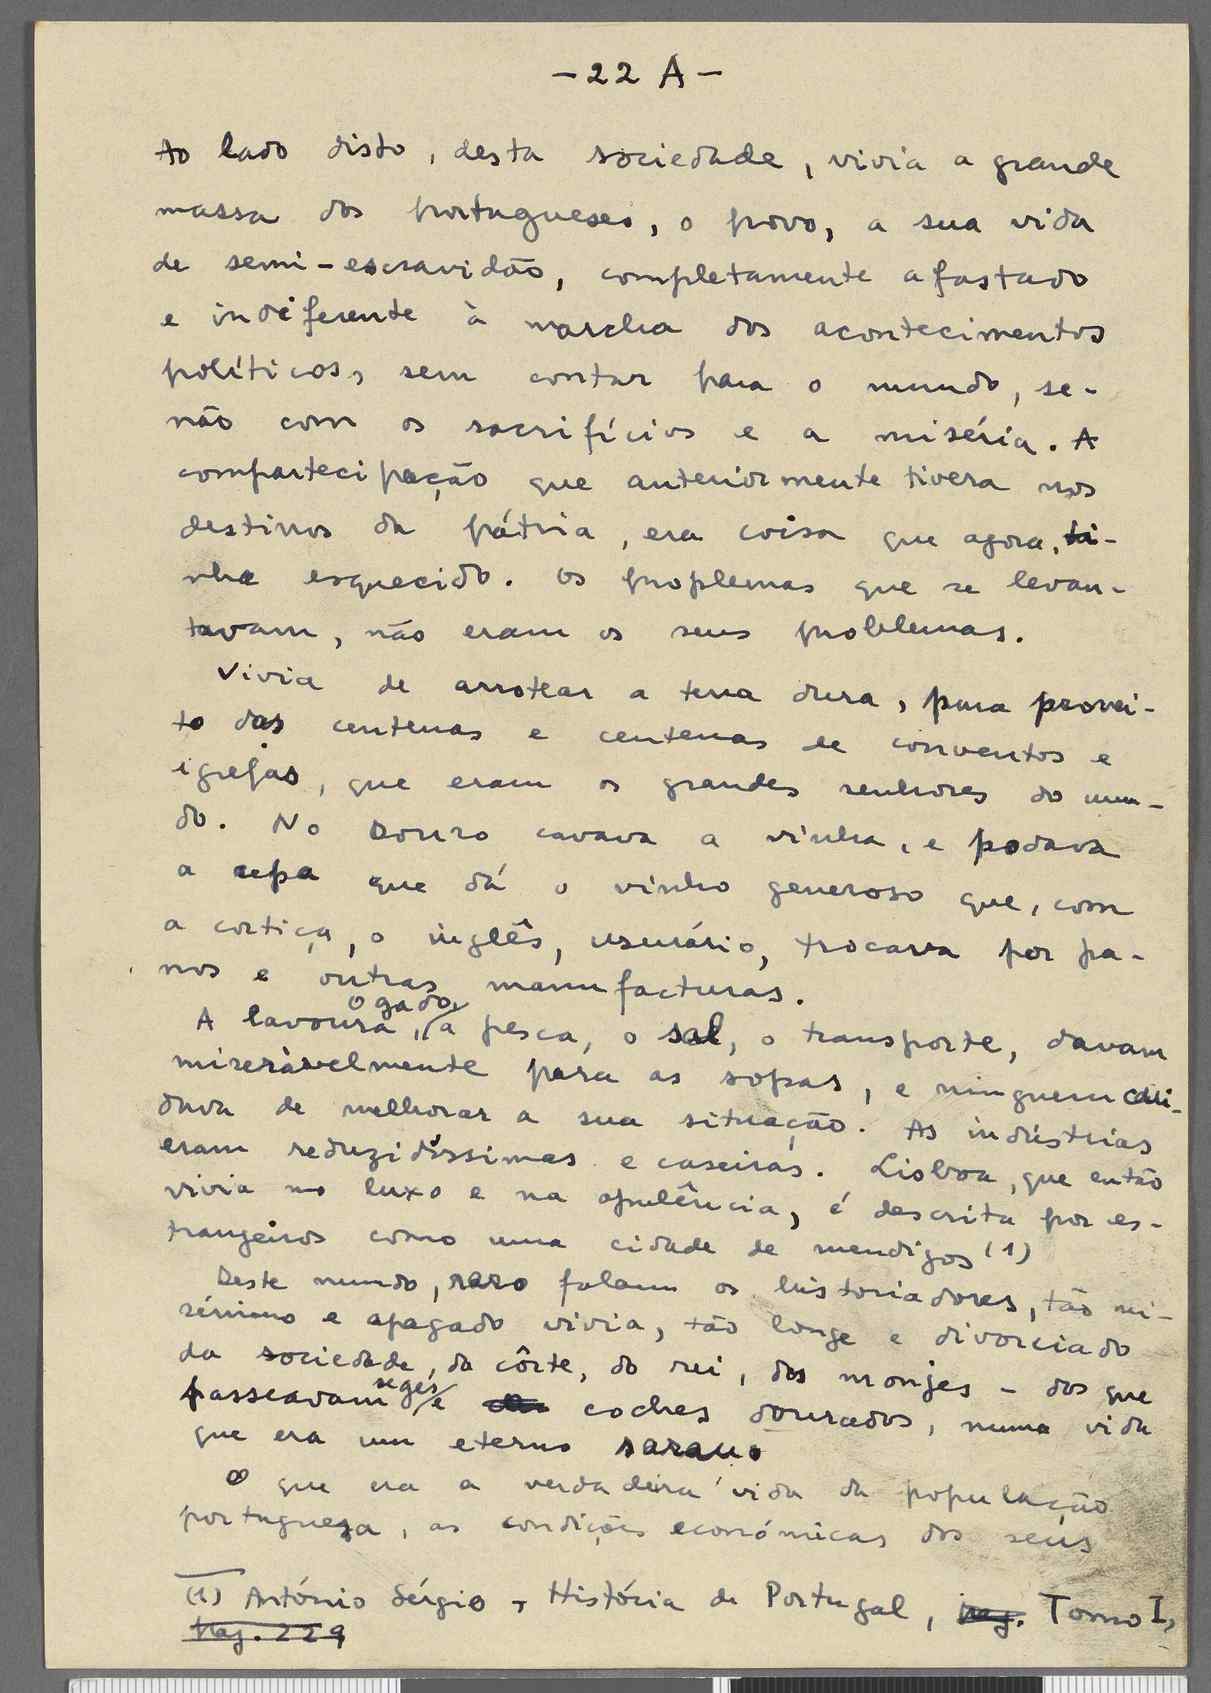 - 22 A -
Ao lado disto, desta sociedade, vivia a grande
massa dos portugueses, o povo, a sua vida
de semi-escravidão, completamente afastado
e indiferente à marcha dos acontecimentos
políticos, sem contar para o mundo, se-
não com os sacrifícios e a miséria. A
compartecipação que anteriormente tivera nos
destinos da pátria, era coisa que agora, ti-
nha esquecido. Os proplemas que se levan-
tavam, não eram os seus problemas.
Vivia de arrotear a terra dura, para provei-
to das centenas e centenas de conventos e
igrejas, que eram os grandes senhores do mun-
do. No Douro cavava a vinha, e podava
a cepa que dá o vinho generoso que, com
a cortiça, o inglês, usurário, trocava por pa-
nos e outras manufacturas.
o gado,
A lavoura, a pesca, o sal, o transporte, davam
miseràvelmente para as sopas, e ninguem cui-
dava de melhorar a sua situação. As indústrias
eram reduzidíssimas e caseiras. Lisboa, que então
vivia no luxo e na opulência, é descrita por es-
trangeiros como uma cidade de mendigos (1)
Deste mundo, raro falam os historiadores, tão mi-
sérrimo e apagado vivia, tão longe e divorciado
da sociedade, da côrte, do rei, dos monjes - dos que
seges
passeavam e coches dourados, numa vida
que era um eterno sarau.
O que era a verdadeira vida da população
portuguesa, as condições económicas dos seus
(1) António Sérgio - História de Portugal, pag. Tomo I,
Pag. 229